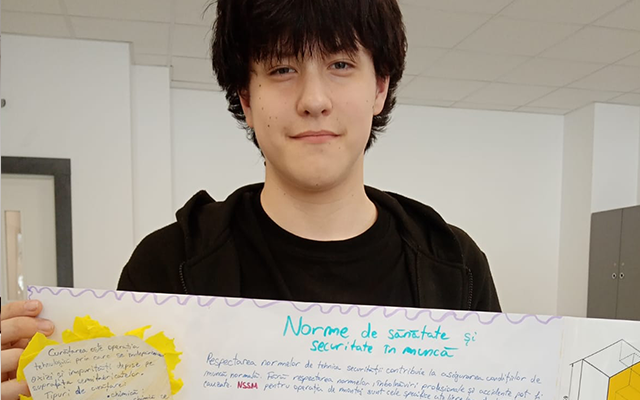 Norme de sănătate și
securitate în muncă
Respectarea normelor de tehnica securității contribuie la asigurarea condițiilor de
muncă normală. Fără respectarea normelor îmbolnăviri profesionale și accidente pot fi
cauzate. NSSM pentru operația de
sunt cele specifice
Curățarea este operația
tehnologică prin care se îndepărtează
și impurități depuse pe
suprafața semifabricatelor.
Tipuri de curățare!
• chimică